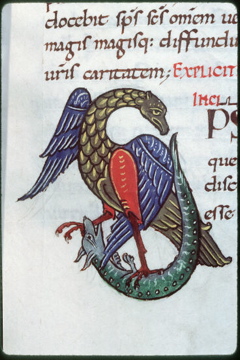 docebit sp̄s sc̄s omēm ue
magis magisq: diffundu
uris caritatem; EXPLICIT
INCI
PS
que
disc
esse